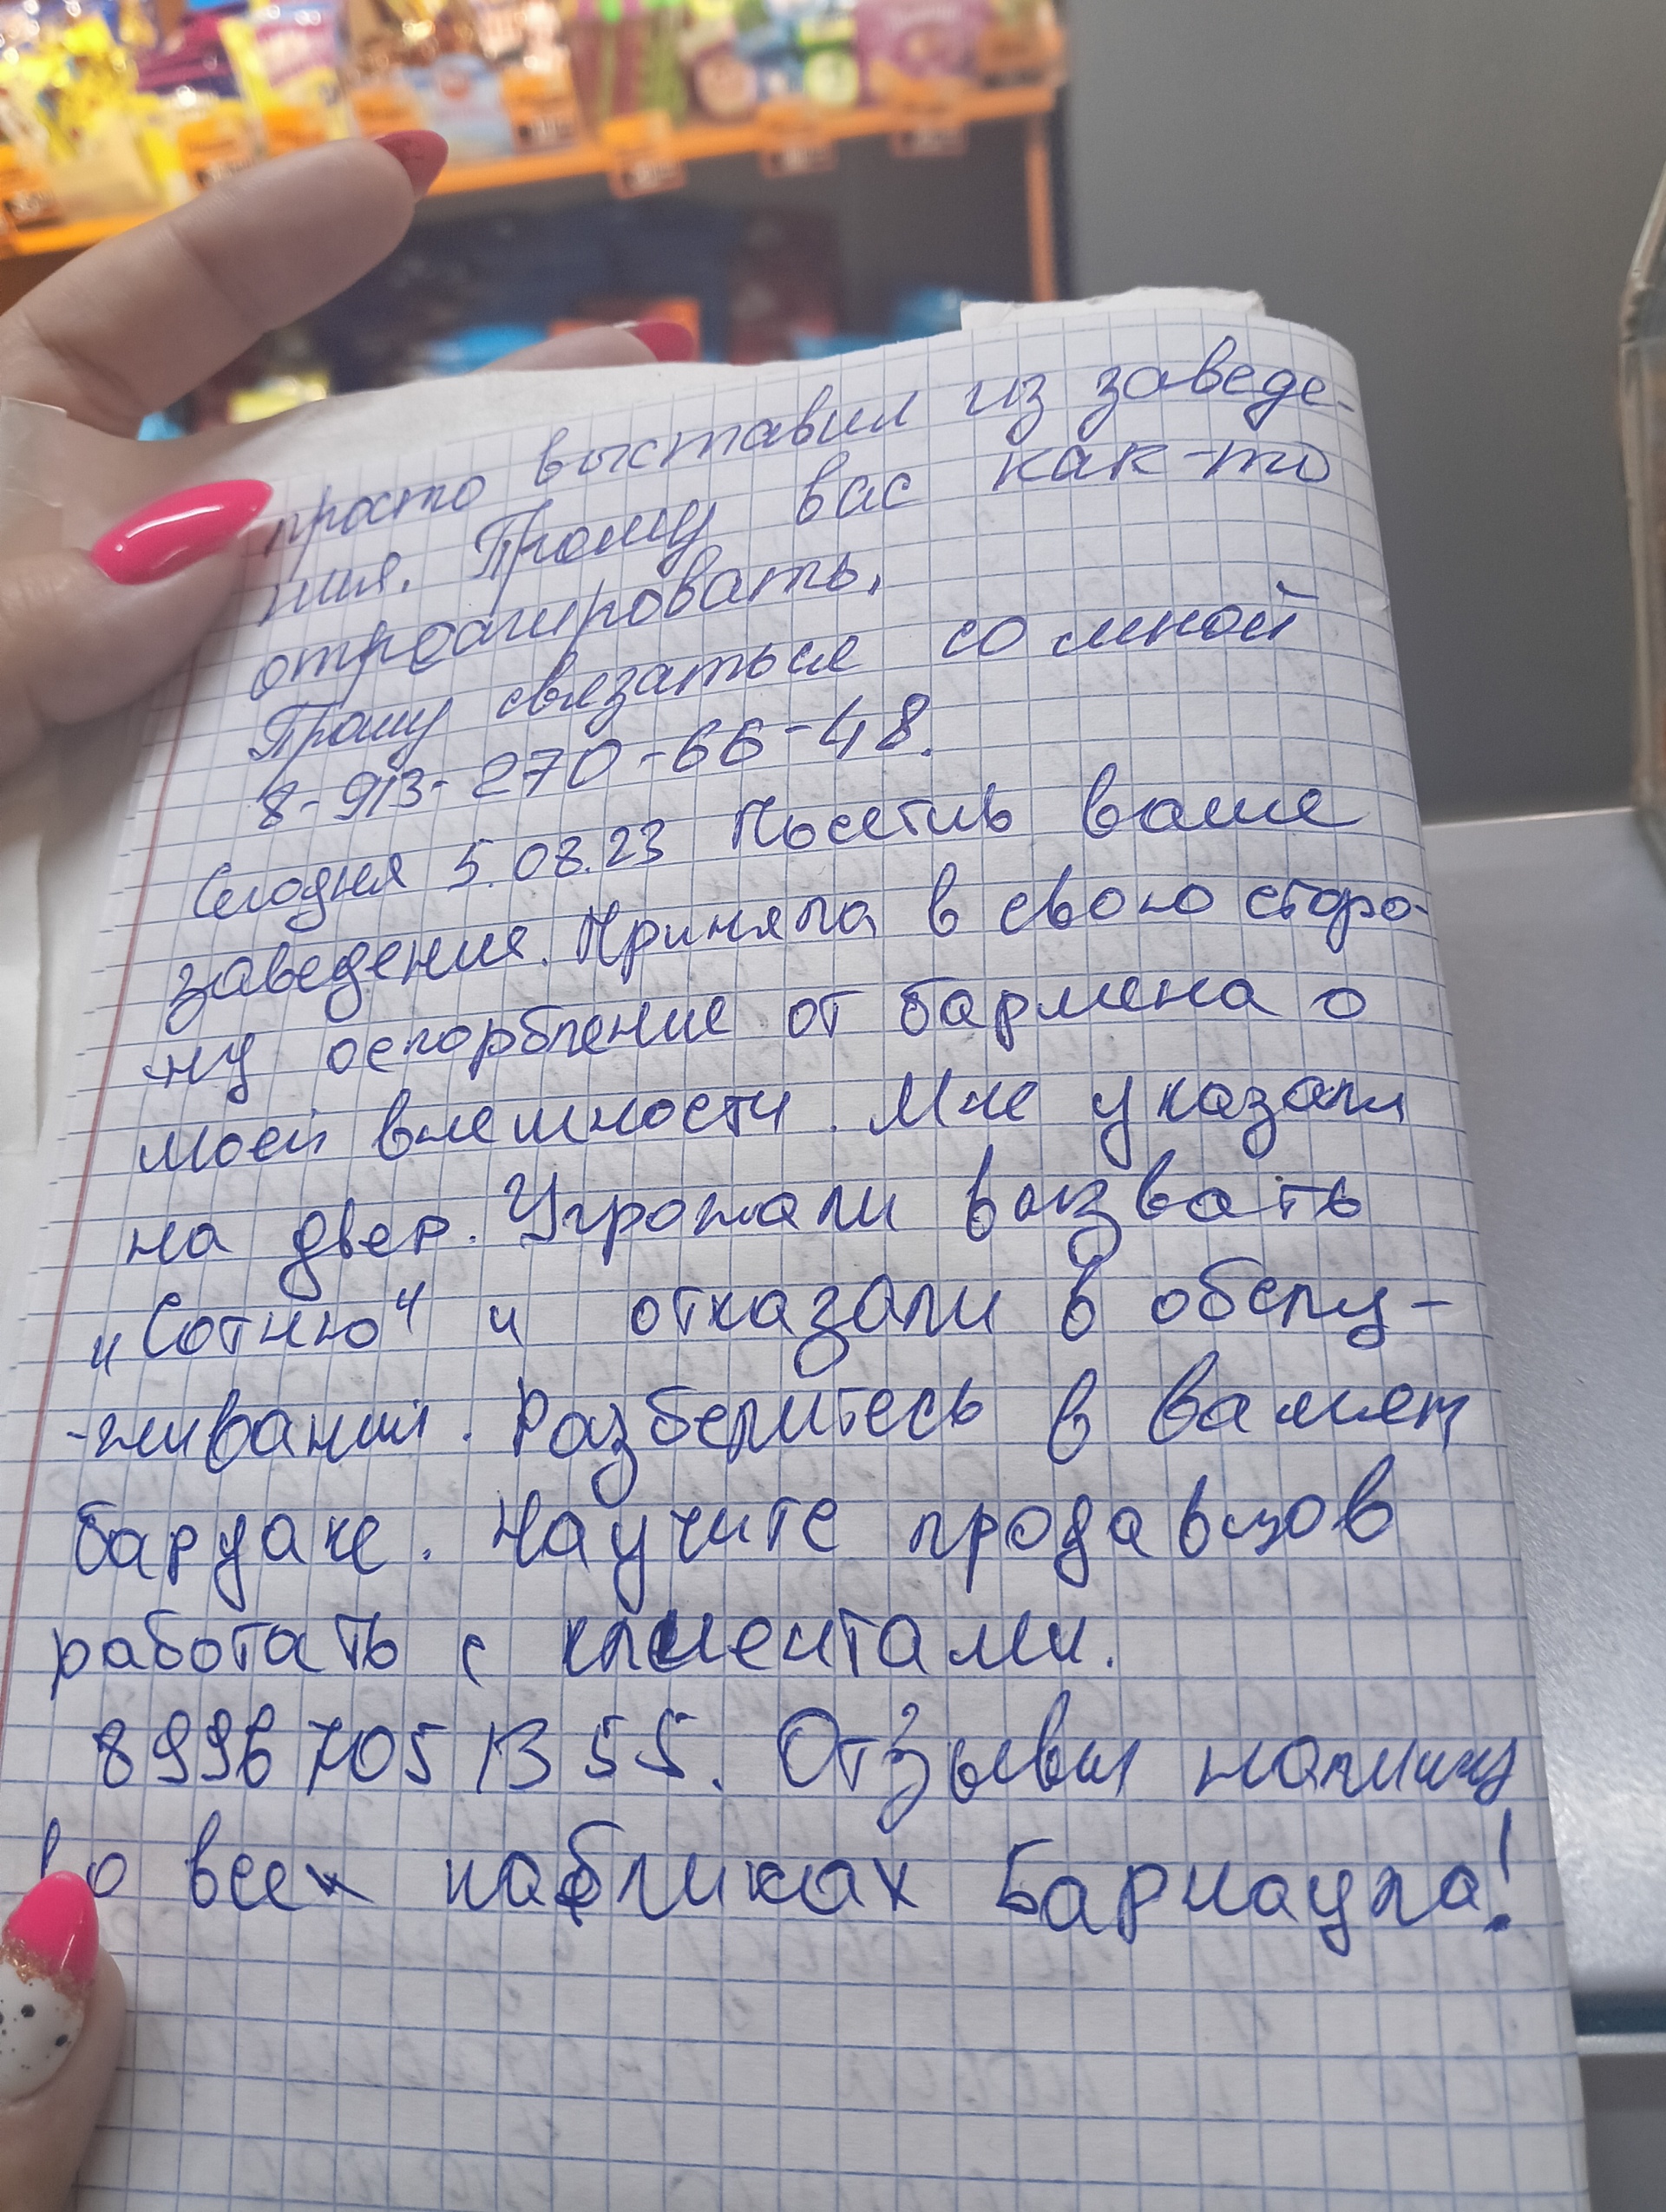 просто выставил из заведе-
ния. Прошу вас как-то
отреагировать.
Прошу связаться со мной
8-913-270-66-48.
Сегодня 5.08.23 Посетив ваше
заведения. Приняла в свою сторо-
-ну оскорбление от бармена о
моей внешности. Мне указали
на двер. Угрожали вызвать
"Сотню" и отказали в обслу-
-живании. Разберитесь в вашем
бардаке. Научите продавцов
работать с клиентами.
8996 705 13 55. Отзывы напишу
во всех пабликах Барнаула!